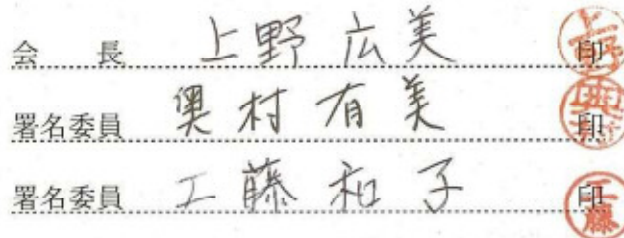 会長 上野広美 印
署名委員 奥村有美 印
署名委員 工藤和子 印